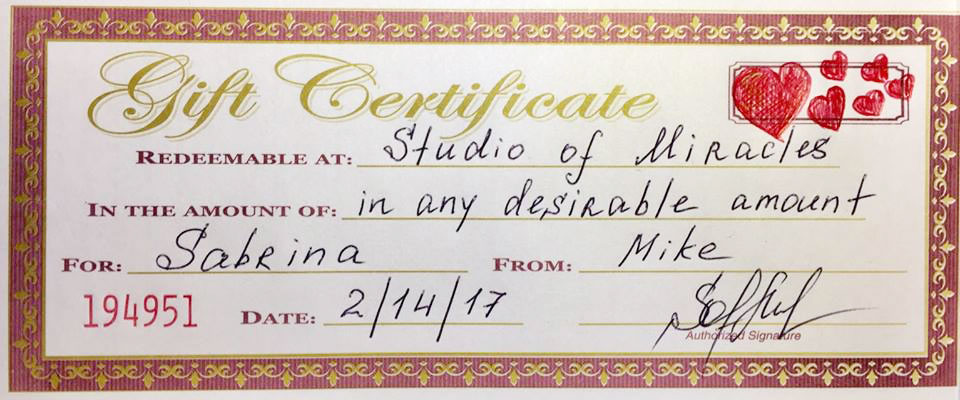 Gift Certificate
REDEEMABLE AT: Studio of Miracles
IN THE AMOUNT OF: in any desirable amount
FOR: Sabrina FROM: Mike
194951 DATE: 2/14/17
Authorized Signature